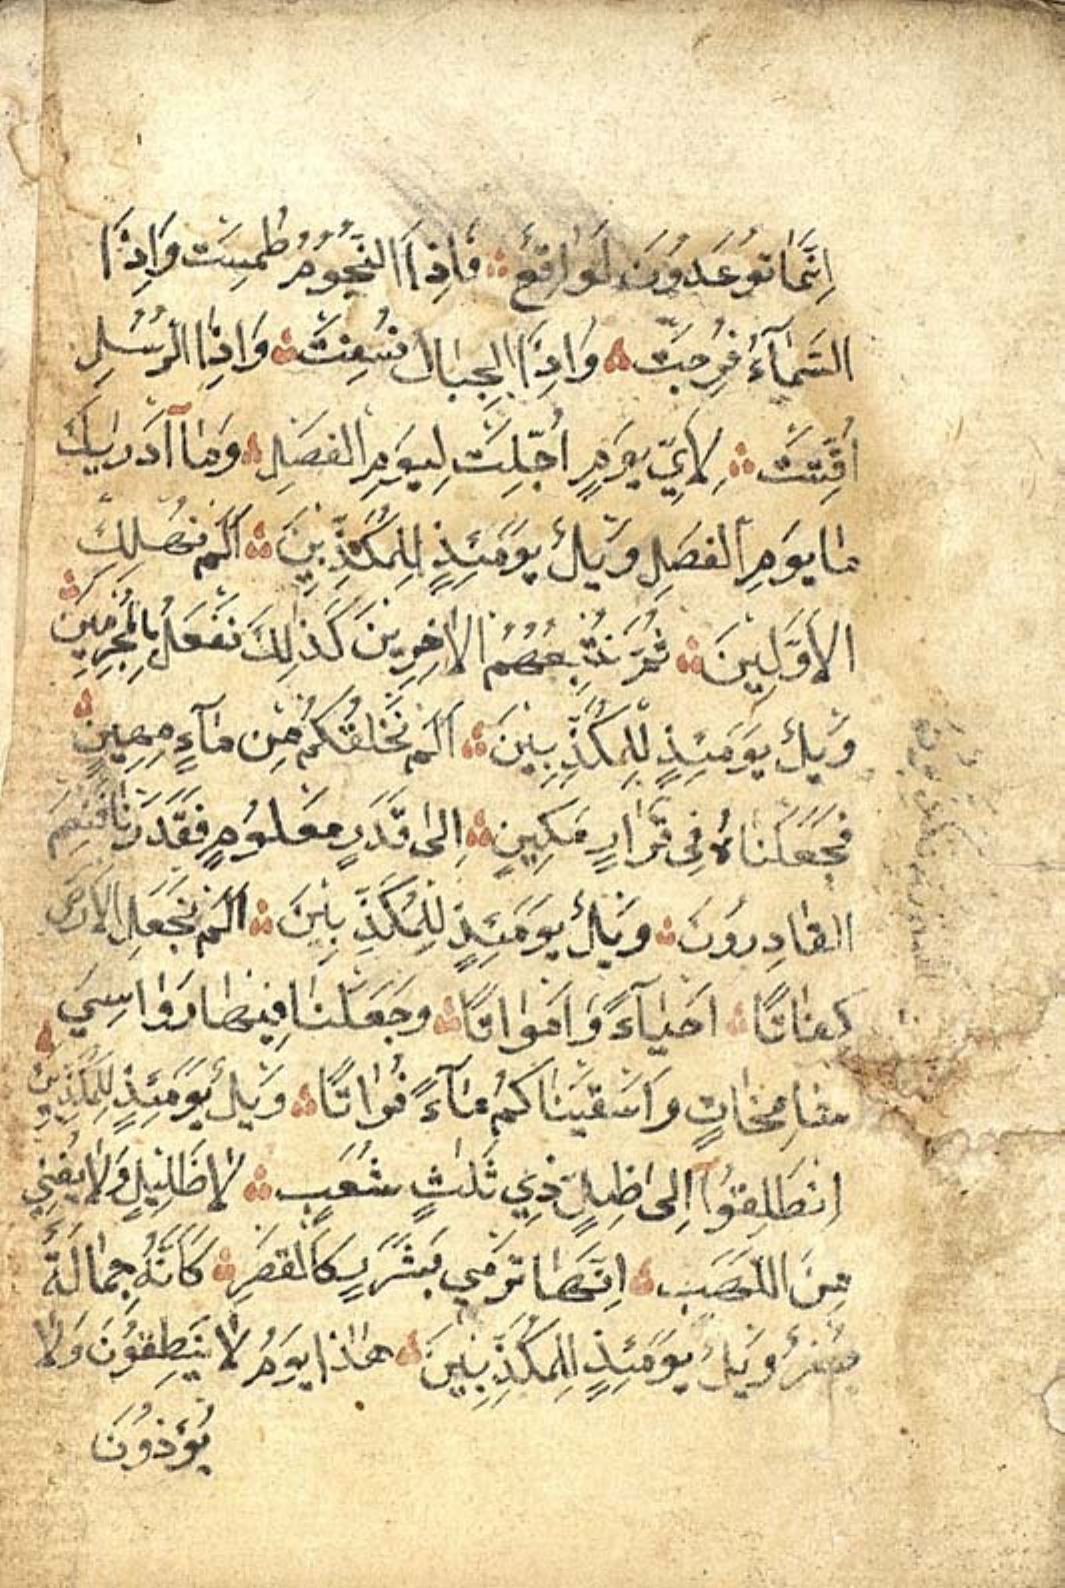 اِنَّمَا تُوعَدُونَ لَوَاقِعٌ فَاِذَا النُّجُومُ طُمِسَتْ وَاِذَا
السَّمَآءُ فُرِجَتْ وَاِذَا الجِبَالُ نُسِفَتْ وَاِذَا الرُّسُلُ
اُقِّتَتْ لِاَيِّ يَوْمٍ اُجِّلَتْ لِيَوْمِ الفَصْلِ وَمَآ اَدْرٰيكَ
مَا يَوْمِ الفَصْلِ وَيْلٌ يَوْمَئِذٍ لِلْمُكَذِّبِينَ اَلَمْ نُهْلِكِ
الاَوَّلِينَ ثُمَّ نُتْبِعُهُمُ الاٰخِرِينَ كَذٰلِكَ نَفْعَلُ بِالْمُجْرِمِينَ
وَيْلٌ يَوْمَئِذٍ لِلْمُكَذِّبِينَ اَلَمْ نَخْلُقْكُمْ مِنْ مَآءٍ مَهِينٍ
فَجَعَلْنَاهُ فِى قَرَارٍ مَكِينٍ اِلىٰ قَدَرٍ مَعْلُومٍ فَقَدَرْنَا فَنِعْمَ
القَادِرُونَ وَيْلٌ يَوْمَئِذٍ لِلْمُكَذِّبِينَ اَلَمْ نَجْعَلِ الاَرْضَ
كِفَاتًا اَحْيَآءً وَاَمْوَاتًا وَجَعَلْنَا فِيهَا رَوَاسِيَ
شَامِخَاتٍ وَاَسْقَيْنَاكُمْ مَآءً فُرَاتًا وَيْلٌ يَوْمَئِذٍ لِلْمُكَذِّبِينَ
اِنْطَلِقُوآ اِلىٰ ظِلٍّ ذِي ثَلٰثِ شُعَبٍ لَا ظَلِيلٍ وَلَا يُغْنِي
مِنَ اللَّهَبِ اِنَّهَا تَرْمِي بِشَرَرٍ كَالْقَصْرِ كَاَنَّهُ جِمَالَةٌ
صُفْرٌ وَيْلٌ يَوْمَئِذٍ لِلْمُكَذِّبِينَ هٰذَا يَوْمُ لَا يَنْطِقُونَ وَلَا
يُؤْذَنُ